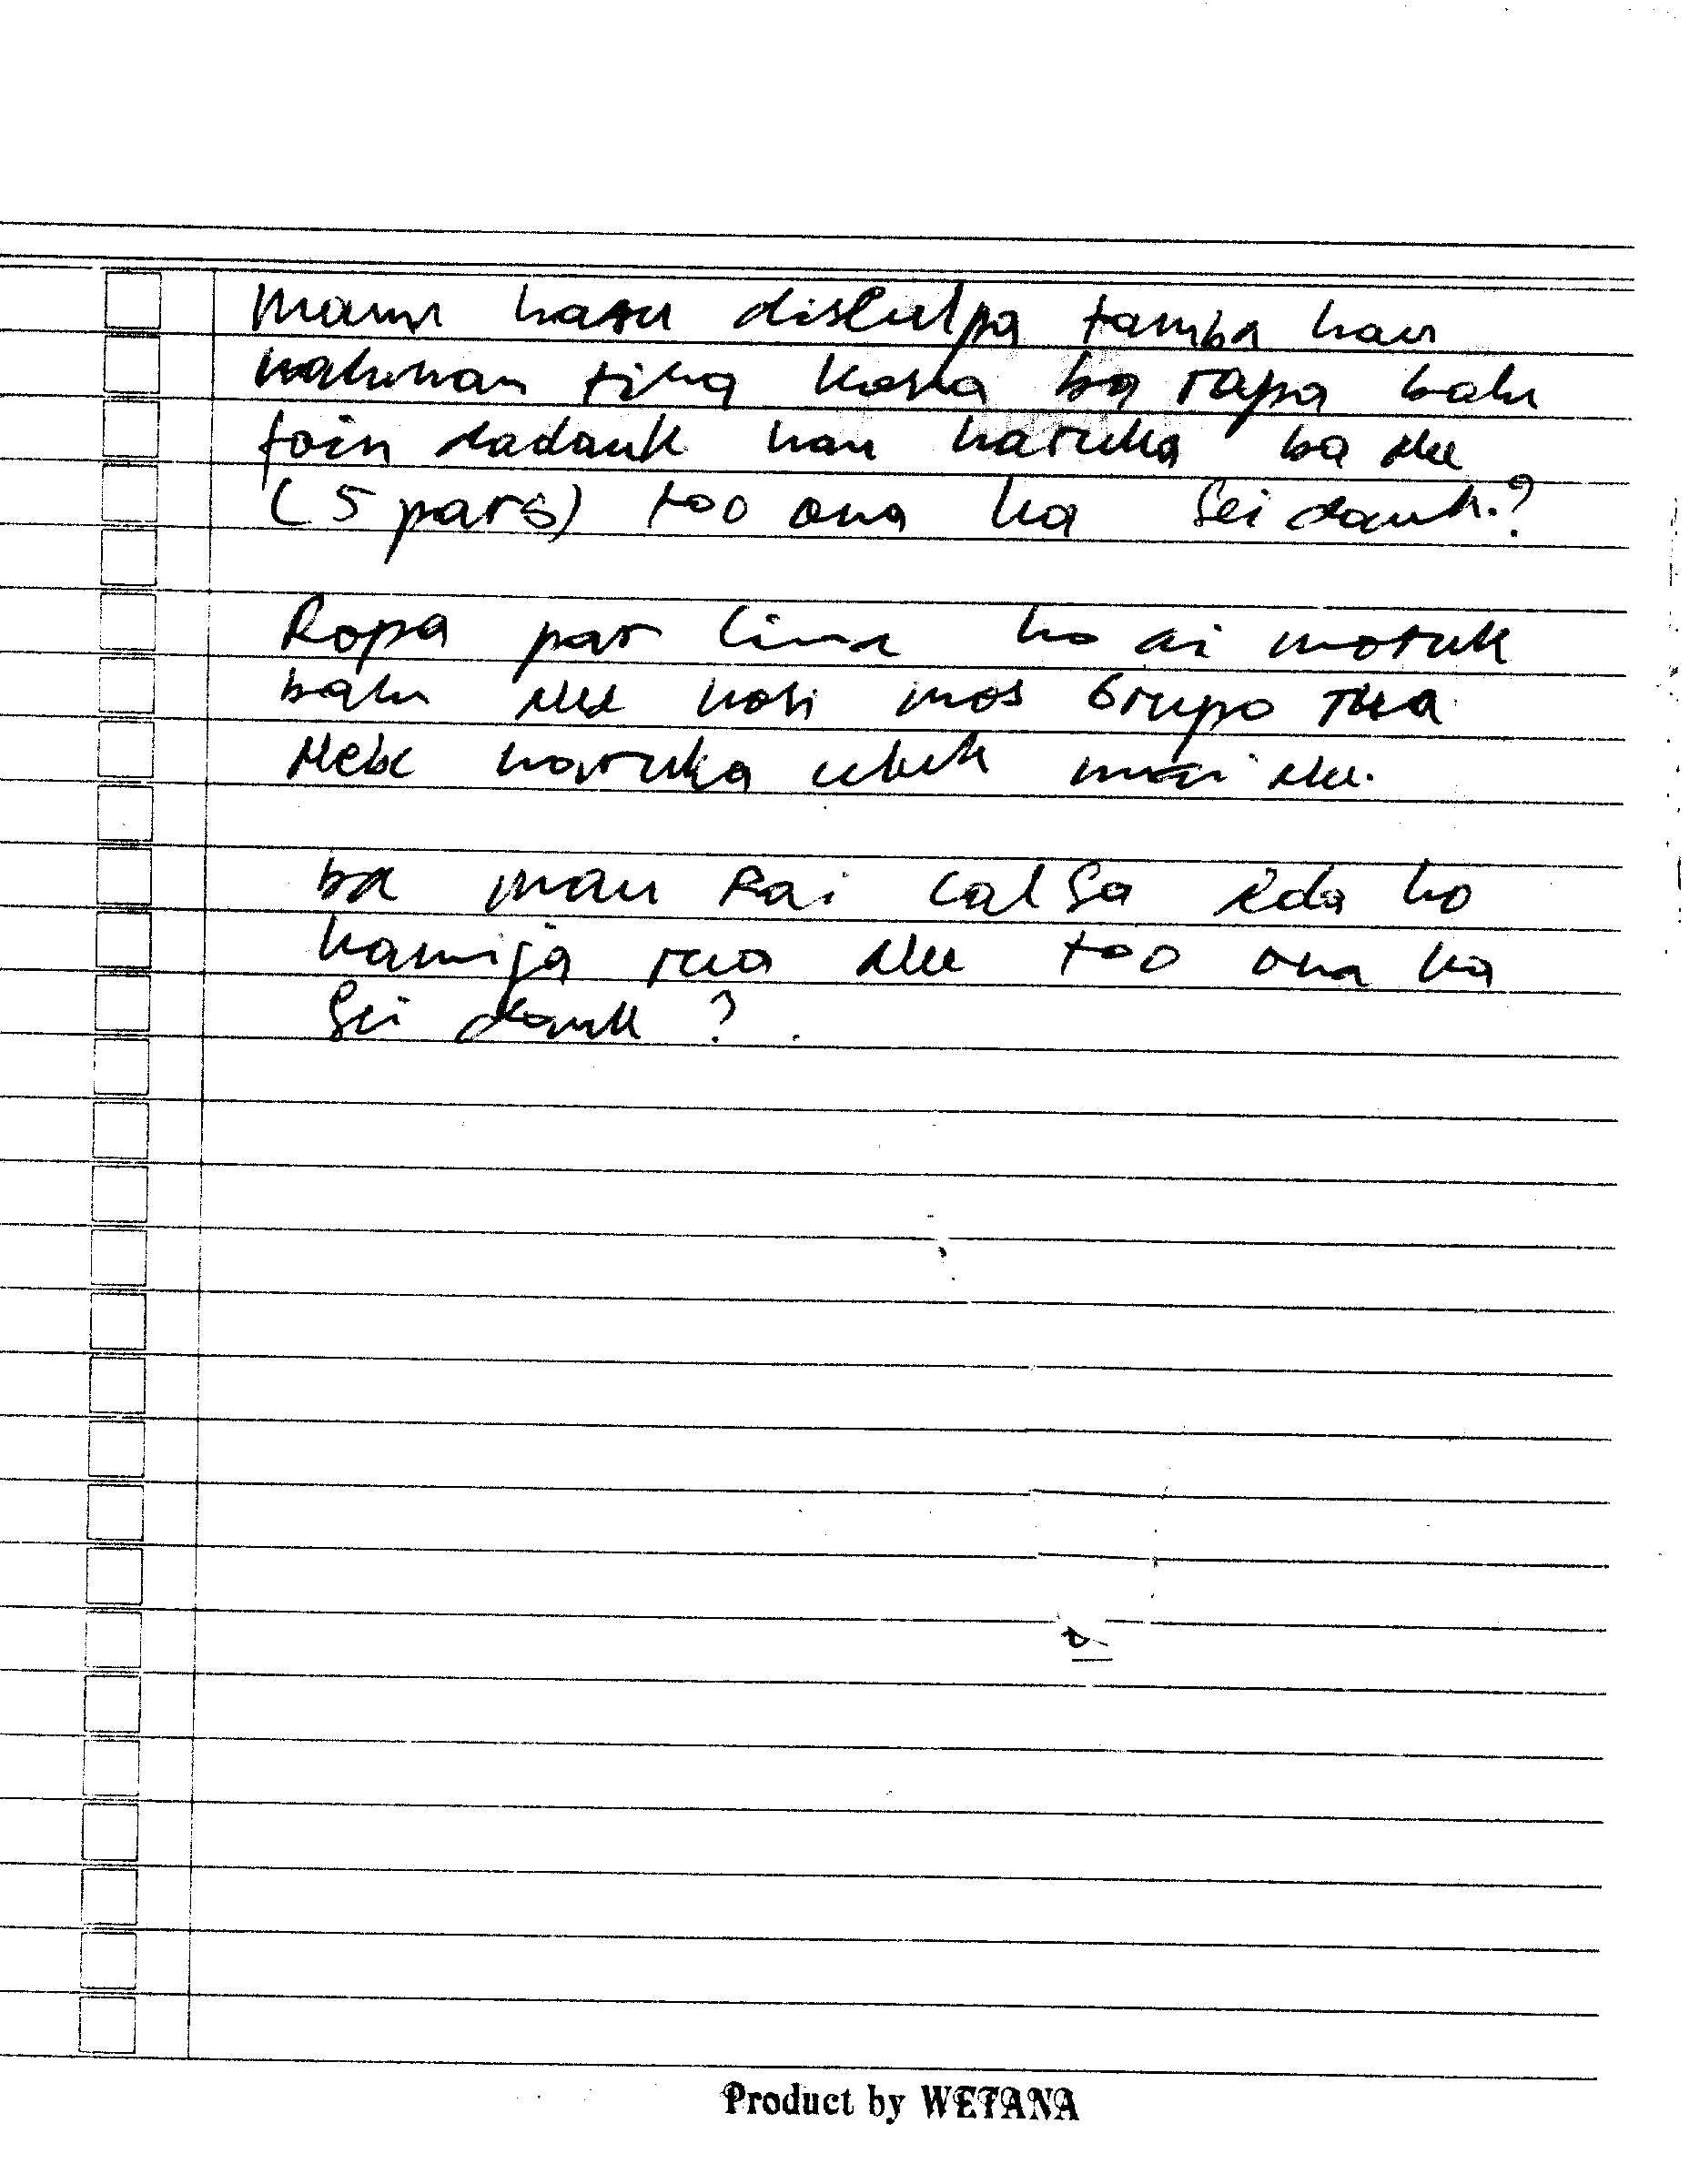 Maun hasu diskulpa tamba hau
nahinan tiha kosta ba rapa balu
foin dadauk hau haruka ba Nee
(5 pars) too ona ka Sei dauk.?
Ropa par lima ho ai moruk
balu Nee hosi mos Grupo
Nebe haruka uluk mai Nee.
ba mau Rai calsa Ida ho
kamija rua Nee too ona ka
Sei dauk ?.
Product by WETANA